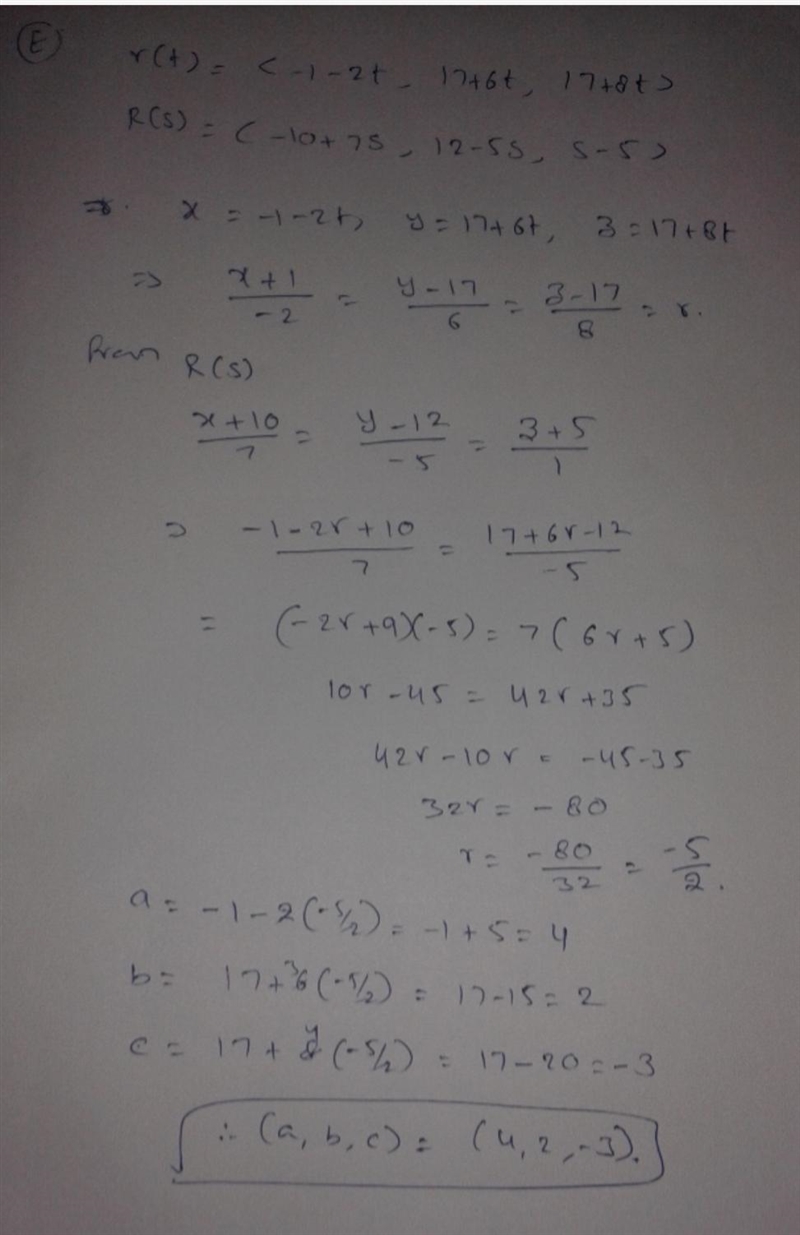 (E)
r(t) = < -1-2t, 17+6t, 17+8t>
R(s) = ( -10+7s, 12-5s, s-5>
⇒. x = -1-2t, y = 17+6t, 3 = 17+8t
⇒ x+1/-2 = y-17/6 = 3-17/8 = r.
From R(s)
x+10/7 = y-12/-5 = 3+5/1
⇒ -1-2r+10/7 = 17+6r-12/-5
= (-2r+9)(-5) = 7(6r+5)
10r-45 = 42r+35
42r-10r = -45-35
32r = -80
r = -80/32 = -5/2.
a = -1-2(-5/2) = -1+5 = 4
b = 17+6(-5/2) = 17-15 = 2
3
c = 17+8(-5/2) = 17-20 = -3
4
∴ (a, b, c) = (4, 2, -3).